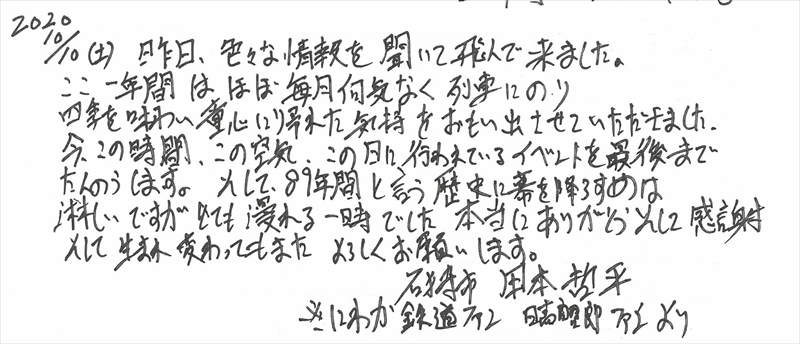 2020
10/10(土) 昨日、色々な情報を聞いて飛んで来ました。
ここ一年間はほぼ毎月何気なく列車にのり
四季を味わい童心に帰れた気持をおもい出させていただきました。
今、この時間、この空気、この日に行われているイベントを最後まで
たんのうします。そして、89年間と言う歴史に幕を降ろすのは
淋しいですがとても浸れる一時でした 本当にありがとうそして感謝
そして生まれ変わってもまたよろしくお願いします。
石狩市 田本 哲平
※にわか鉄道ファン ファンより